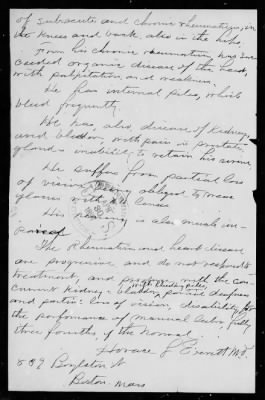 of subacute and chronic rheumatism, in
the knees and back, also in the hips.
From his chronic rheumatism has suc-
ceeded organic disease of the heart,
with palpitation and weakness.
He has internal piles, which
bleed frequently
He has, also, disease of kidneys,
and bladder, with pain in prostate
gland & inability to retain his urine
He suffers from partial loss
of vision, being obliged to wear
glasses with all
His hearing is also much im-
paired
The Rheumatism and heart disease
are progressive and do not respond to
treatment, and with the con-
current kidney & bladder, partial deafness
with bleeding piles,
and partial loss of vision, disability for
the performance of manual labor fully
three fourths, of the normal.
Horace G Everett M.D.
Boylston St
Boston. Mass